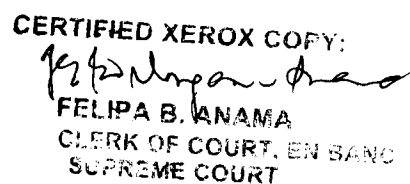 CERTIFIED XEROX COPY:
FELIPA B. ANAMA
CLERK OF COURT, EN BANC
SUPREME COURT